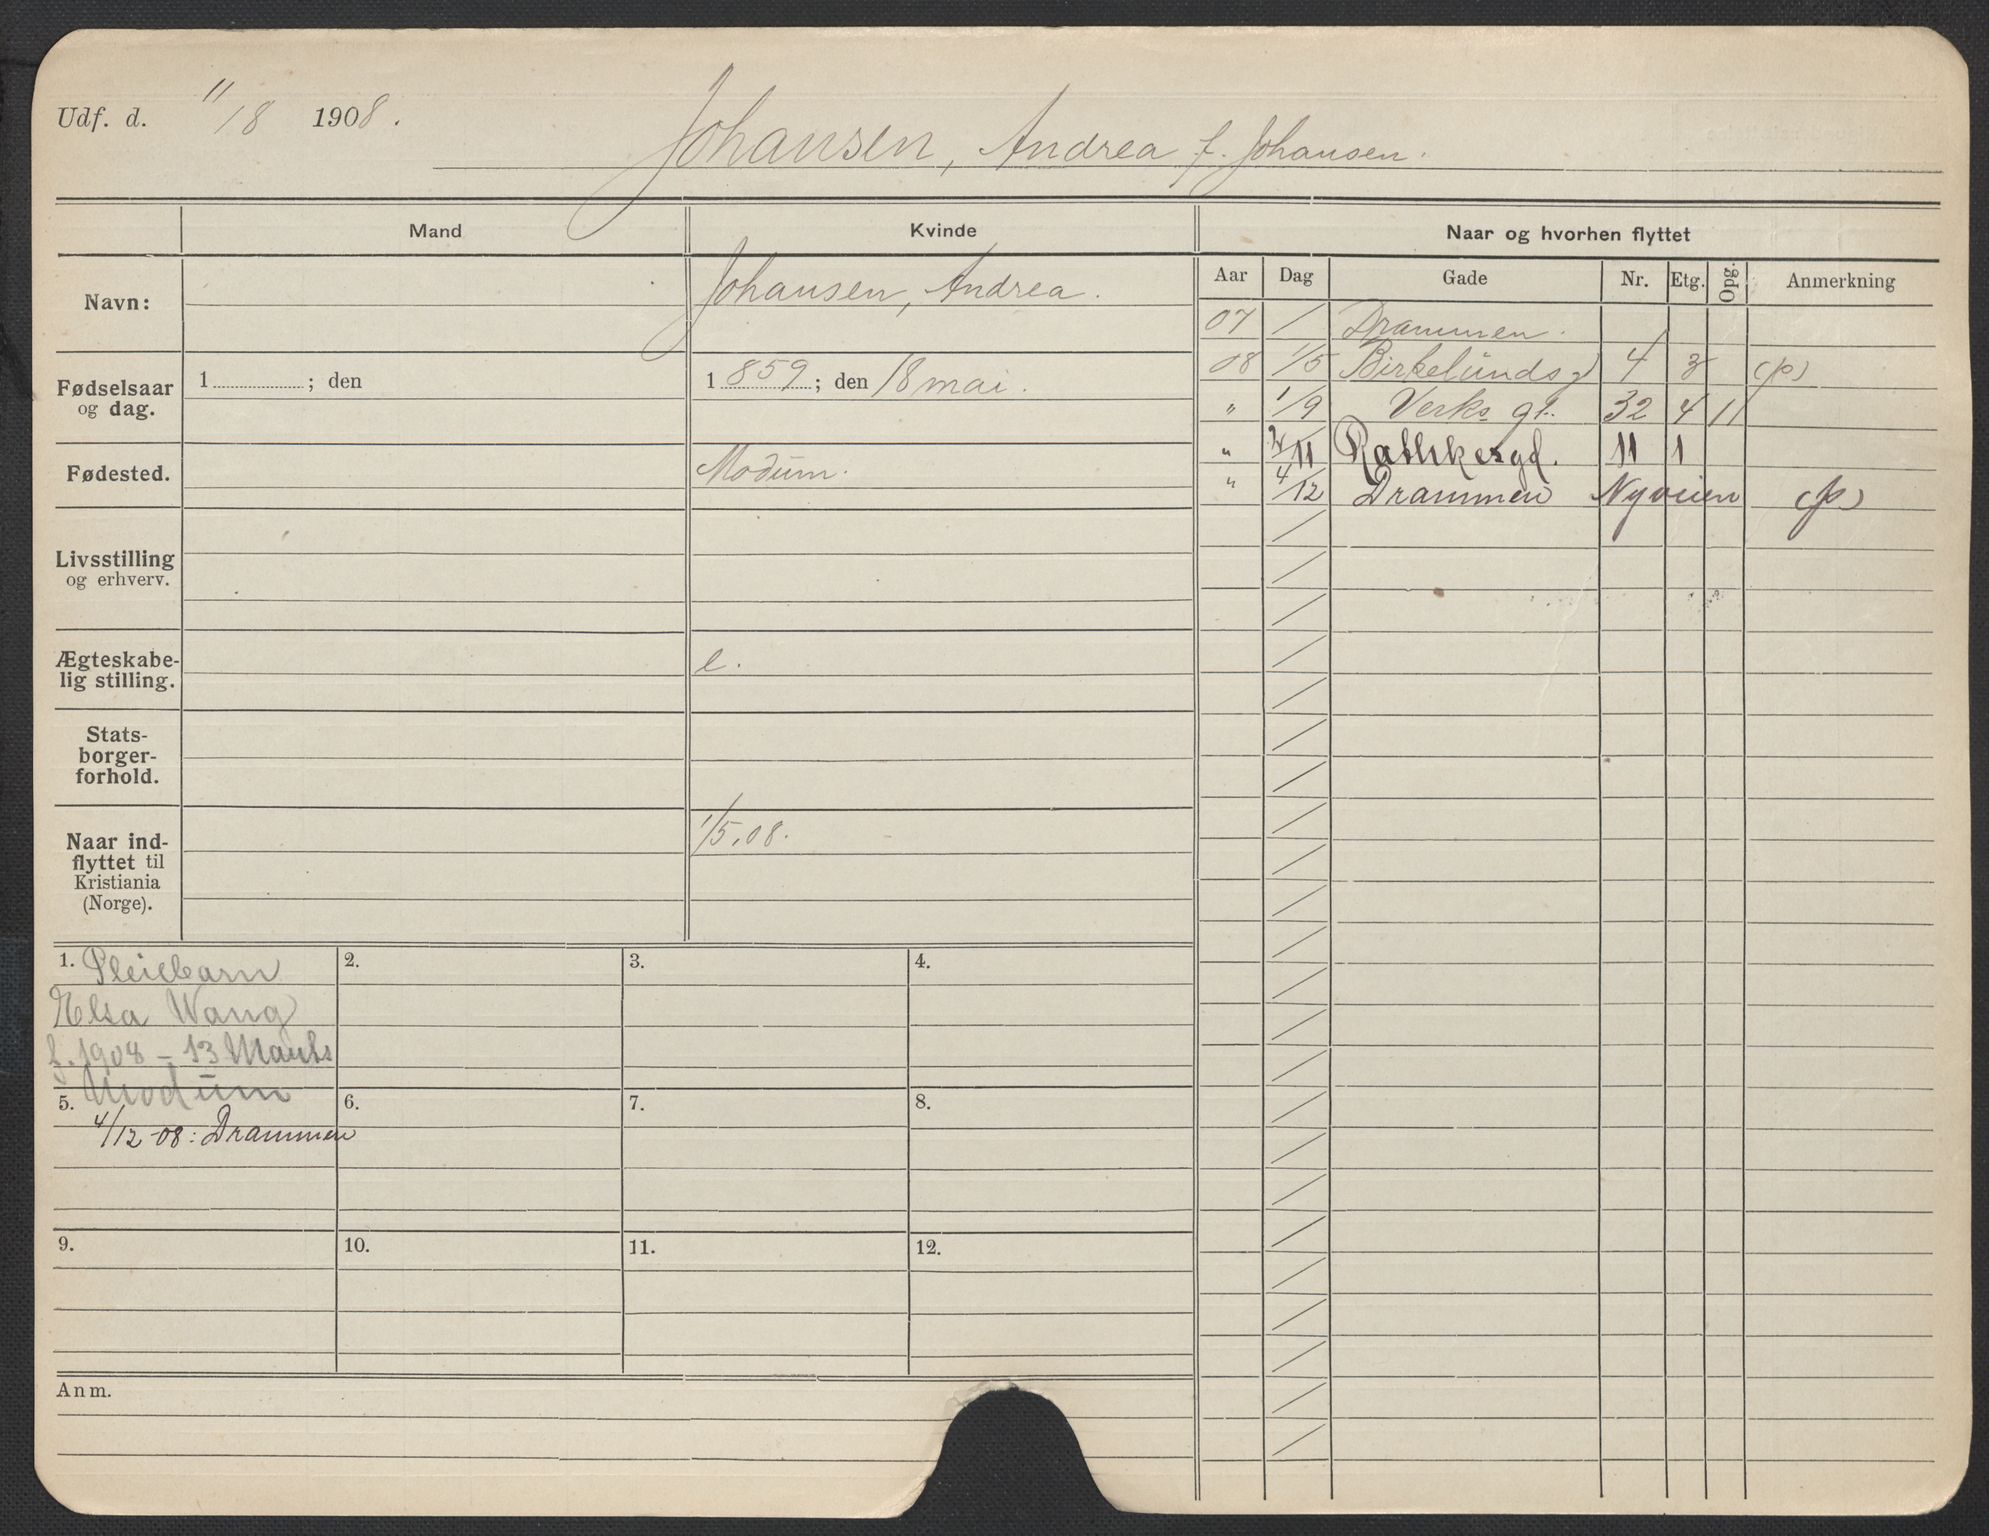 Udf. d. 11/8 1908.
Johansen, Andrea f. Johansen.
Mand
Kvinde
Naar og hvorhen flyttet
Aar Dag Gade Nr. Etg. Opg. Anmerkning
Navn:
Johansen, Andrea.
Fødselsaar og dag.
1 ; den
1 859 ; den 18 mai.
Fødested.
Modum.
Livsstilling
og erhverv.
Ægteskabe-
lig stilling.
e.
Stats-
borger-
forhold.
Naar ind-
flyttet til
Kristiania
(Norge).
1/5.08.
07 / Drammen.
08 1/5 Birkelundsg 4 3 (p)
" 1/9 Verksgt. 32 4 11
" 2/11 Rathkesgd. 11 1
" 4/12 Drammen Nyveien (p)
1. Pleiebarn
Elsa Wang
f. 1908 - 13 Marts
Modum
2.
3.
4.
5.
4/12-08: Drammen
6.
7.
8.
9.
10.
11.
12.
Anm.